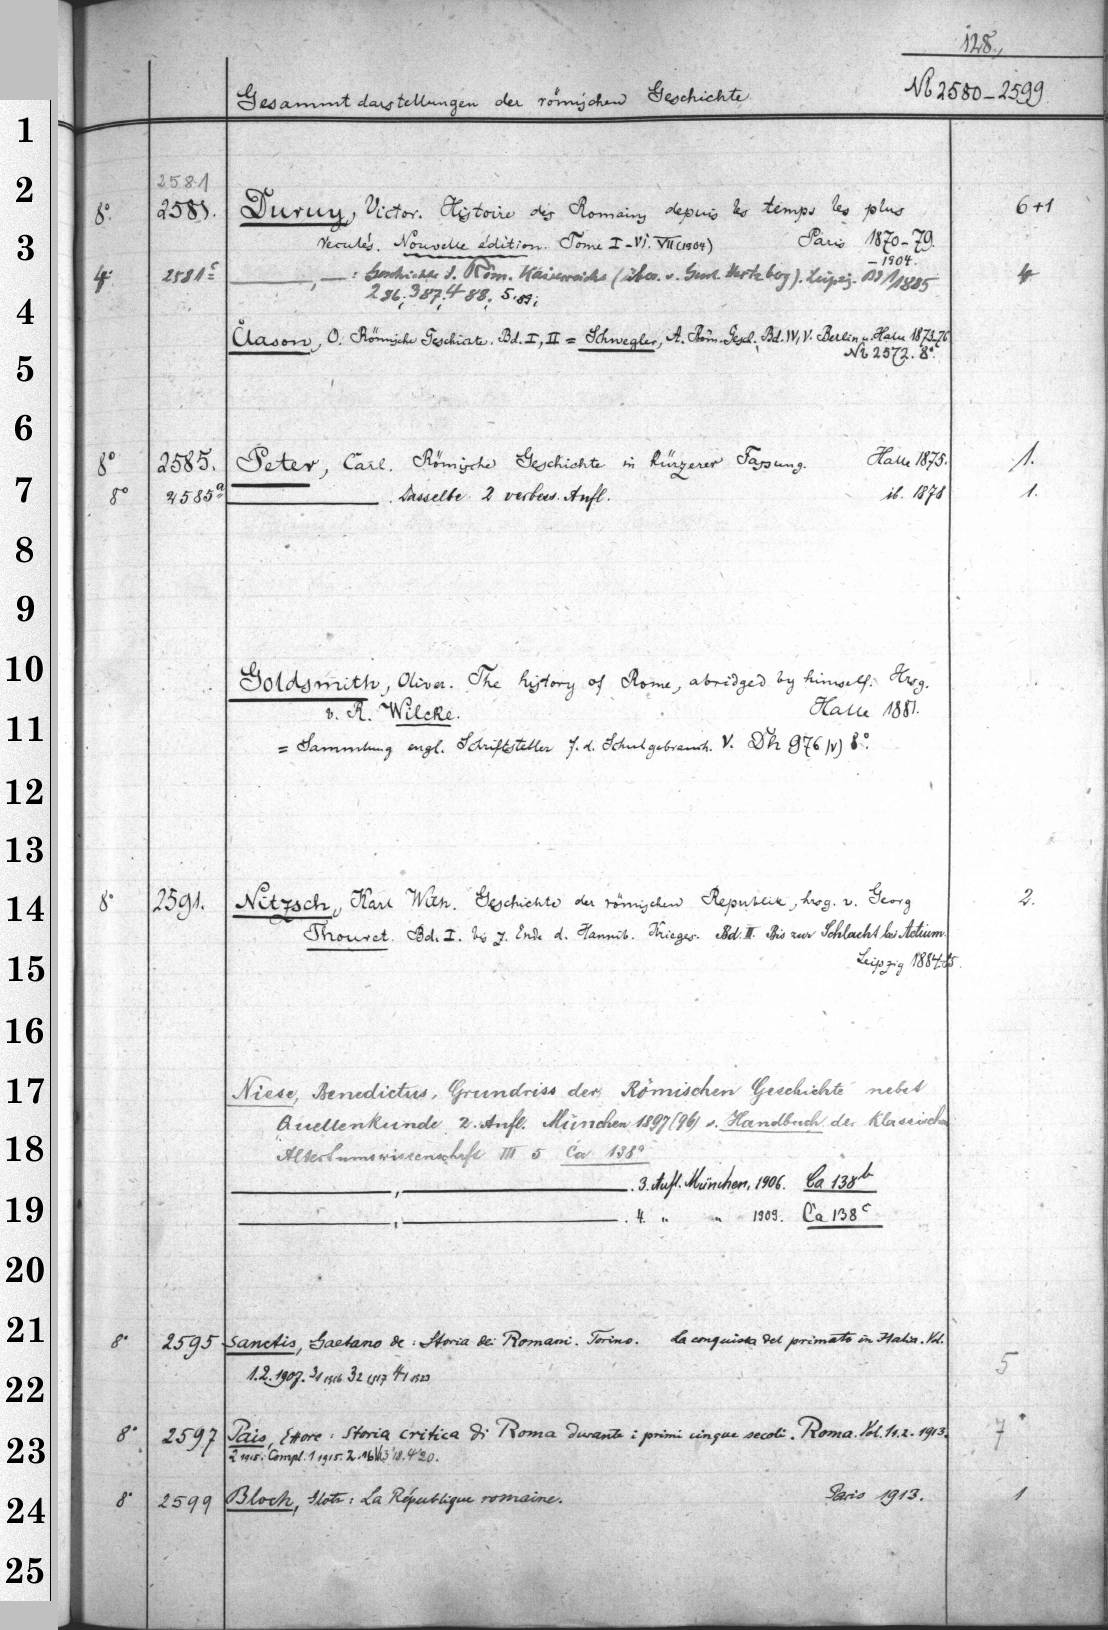 128.
Gesammtdarstellungen der römischen Geschichte № 2580-2599
1
2
3
4
5
6
7
8
9
10
11
12
13
14
15
16
17
18
19
20
21
22
23
24
25
2581
8° 2581. Duruy, Victor. Histoire des Romains depuis les temps les plus 6+1
reculés. Nouvelle édition. Tome I-VI. VII (1904) Paris 1870-79.
-1904.
4° 2581c ———, — : Geschichte d. Röm. Kaiserreichs (übers. v. Gust. Hertzberg). Leipzig. 1885 4
2 86; 3 87; 4 88; 5. 89;
Clason, O. Römische Geschichte. Bd. I, II = Schwegler, A. Röm. Gesch. Bd. IV, V. Berlin u. Halle 1873-76
№ 2572. 8°.
8° 2585. Peter, Carl. Römische Geschichte in kürzerer Fassung. Halle 1875. 1.
8° 2585a ——— . Dasselbe 2 verbess. Aufl. ib. 1878 1.
Goldsmith, Oliver. The history of Rome, abridged by himself. Hrsg.
v. R. Wilcke. Halle 1881.
= Sammlung engl. Schriftsteller f. d. Schulgebrauch. V. Dh 976 (V) 8°.
8° 2591. Nitzsch, Karl Wilh. Geschichte der römischen Republik, hrsg. v. Georg 2.
Thouret. Bd. I. bis z. Ende d. Hannib. Krieges. Bd. II. Bis zur Schlacht bei Actium.
Leipzig 1884-85.
Niese, Benedictus, Grundriss der Römischen Geschichte nebst
Quellenkunde 2. Aufl. München 1897(96) s. Handbuch der klassischen
Altertumswissenschaft III 5 Ca 138a
———, ——— . 3. Aufl. München, 1906. Ca 138b
———, ——— . 4. " " 1909. Ca 138c
8° 2595 Sanctis, Gaetano de: Storia dei Romani. Torino. La conquista del primato in Italia. Vol.
1.2. 1907. 3,1 1916 3,2 1917 4,1 1923 5
8° 2597 Pais, Ettore: Storia critica di Roma durante i primi cinque secoli. Roma. Vol. 1,1.2. 1913. 7
8° 2599 Bloch, : La République romaine. Paris 1913. 1